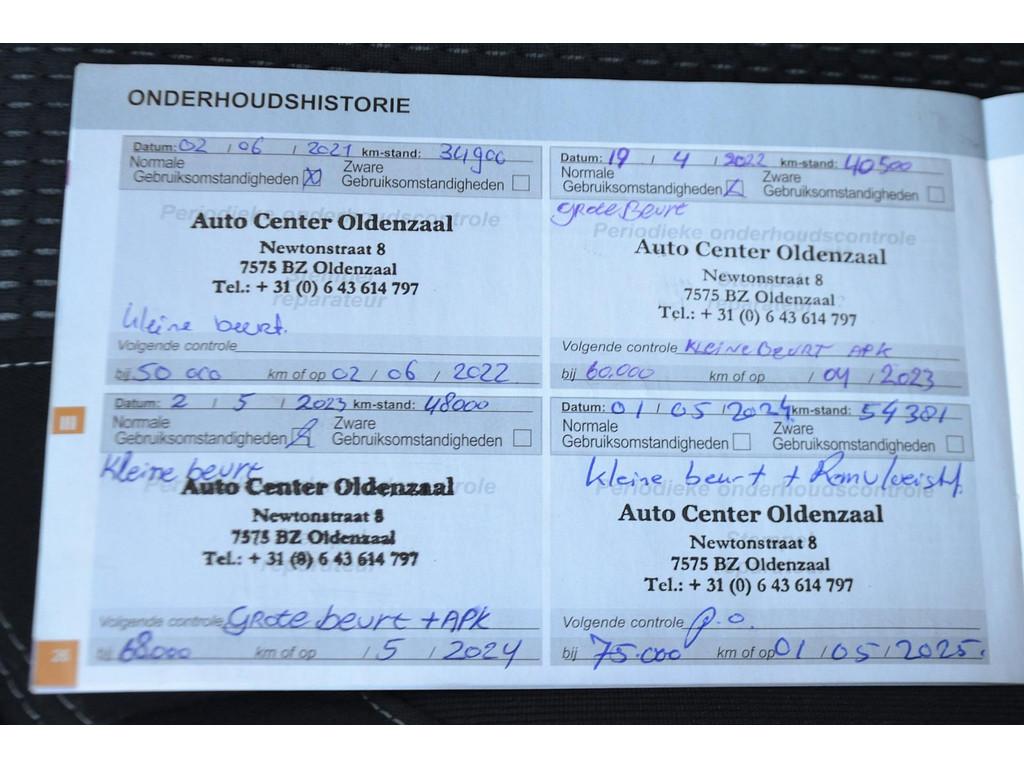 ONDERHOUDSHISTORIE
Datum: 02 / 06 / 2021 km-stand: 34900
Normale Gebruiksomstandigheden Zware Gebruiksomstandigheden
Periodieke onderhoudscontrole
Auto Center Oldenzaal
Newtonstraat 8
7575 BZ Oldenzaal
Tel.: + 31 (0) 6 43 614 797
reparateur
kleine beurt.
Volgende controle
bij 50 000 km of op 02 / 06 / 2022
Datum: 19 / 4 / 2022 km-stand: 40500
Normale Gebruiksomstandigheden Zware Gebruiksomstandigheden
grote Beurt
Periodieke onderhoudscontrole
Auto Center Oldenzaal
Newtonstraat 8
7575 BZ Oldenzaal
Tel.: + 31 (0) 6 43 614 797
Volgende controle KLeine BeURT APK
bij 60.000 km of op / 04 / 2023
III
Datum: 2 / 5 / 2023 km-stand: 48000
Normale Gebruiksomstandigheden Zware Gebruiksomstandigheden
Kleine beurt
Auto Center Oldenzaal
Newtonstraat 8
7575 BZ Oldenzaal
Tel.: + 31 (0) 6 43 614 797
reparateur
Volgende controle Grote beurt + APK
bij 68.000 km of op / 5 / 2024
26
Datum: 01 / 05 / 2024 km-stand: 54381
Normale Gebruiksomstandigheden Zware Gebruiksomstandigheden
kleine beurt +
Periodieke onderhoudscontrole
Auto Center Oldenzaal
Newtonstraat 8
7575 BZ Oldenzaal
Tel.: + 31 (0) 6 43 614 797
Volgende controle p.o.
bij 75.000 km of op 01 / 05 / 2025.